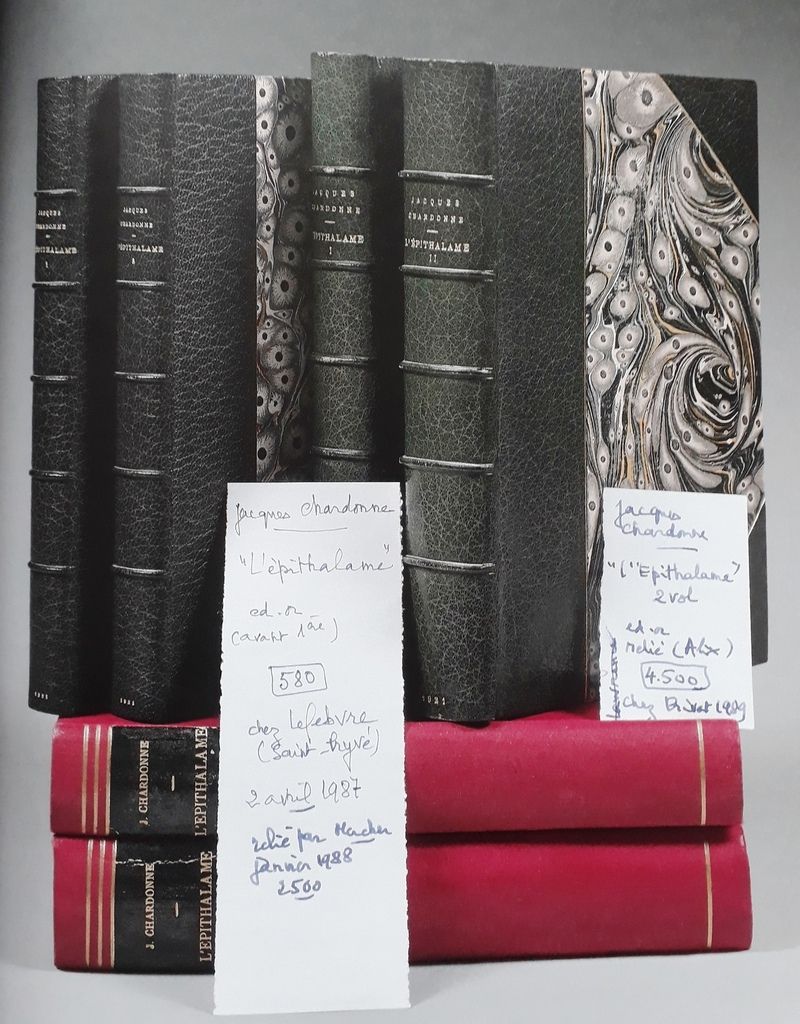 JACQUES
CHARDONNE
L'ÉPITHALAME
I
1921
JACQUES
CHARDONNE
L'ÉPITHALAME
1921
JACQUES
CHARDONNE
ÉPITHALAME
I
JACQUES
CHARDONNE
L'ÉPITHALAME
II
1921
Jacques Chardonne
"L'épithalame"
ed. or
(avant 1ère)
580
chez Lefebvre
(Saint-Hyvé)
2 avril 1987
relié par Mercher
Janvier 1988
2500
Jacques
Chardonne
"L'Epithalame"
2 vol
ed. or
relié (Alix)
4.500
chez 1989
J. CHARDONNE
—
L'EPITHALAME
J. CHARDONNE
—
L'EPITHALAME